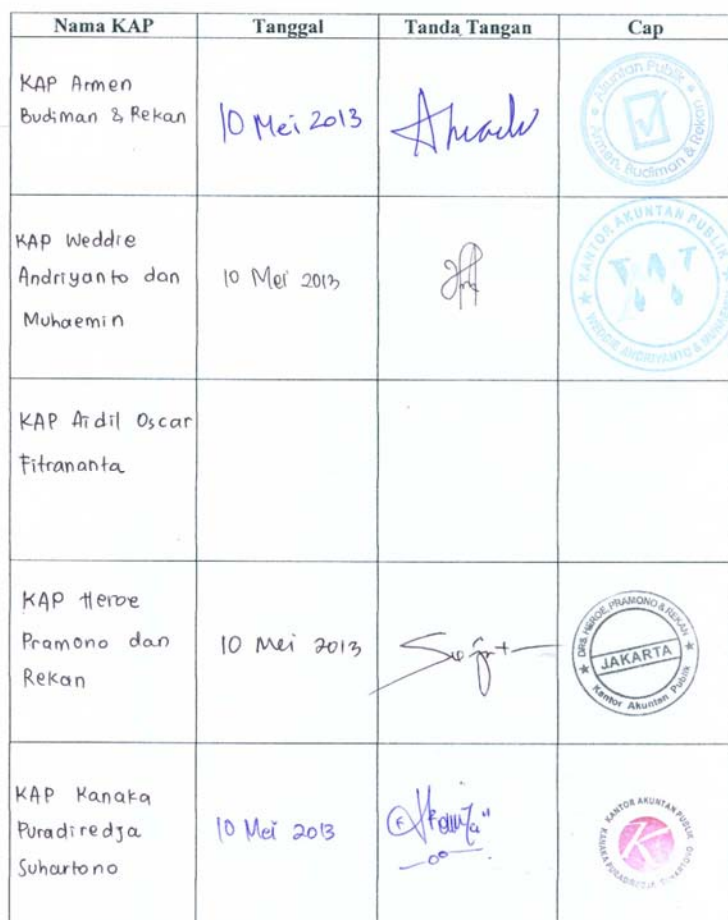 Nama KAP Tanggal Tanda Tangan Cap
KAP Armen
Budiman & Rekan
10 Mei 2013
Akuntan Publik
Armen, Budiman & Rekan
KAP Weddie
Andriyanto dan
Muhaemin
10 Mei 2013
KANTOR AKUNTAN PUBLIK
WEDDIE ANDRIYANTO &
KAP Aidil Oscar
Fitrananta
KAP Heroe
Pramono dan
Rekan
10 Mei 2013
DRS. HEROE, PRAMONO & REKAN
JAKARTA
Kantor Akuntan Publik
KAP Kanaka
Puradiredja
Suhartono
10 Mei 2013
KANTOR AKUNTAN PUBLIK
K
KANAKA PURADIREDJA, SUHARTONO